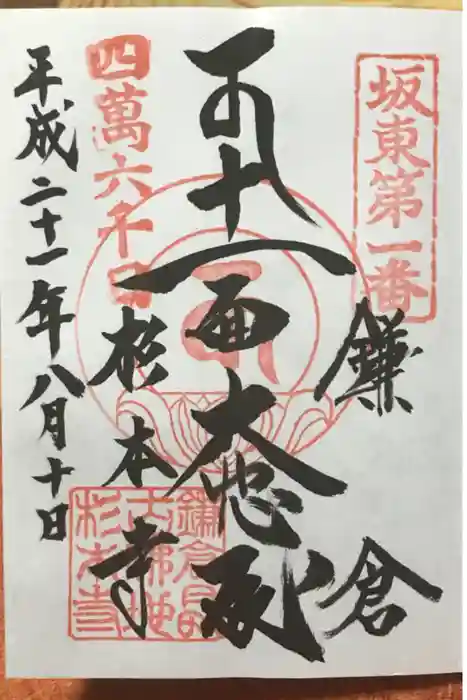 坂東第一番
鎌倉
十一面大悲殿
四萬六千日
杉本寺
鎌倉最
古佛地
杉本寺
平成二十一年八月十日